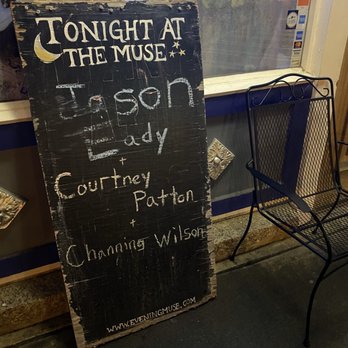 TONIGHT AT
THE MUSE
Jason
Eady
+
Courtney
Patton
+
Channing Wilson
WWW.EVENINGMUSE.COM